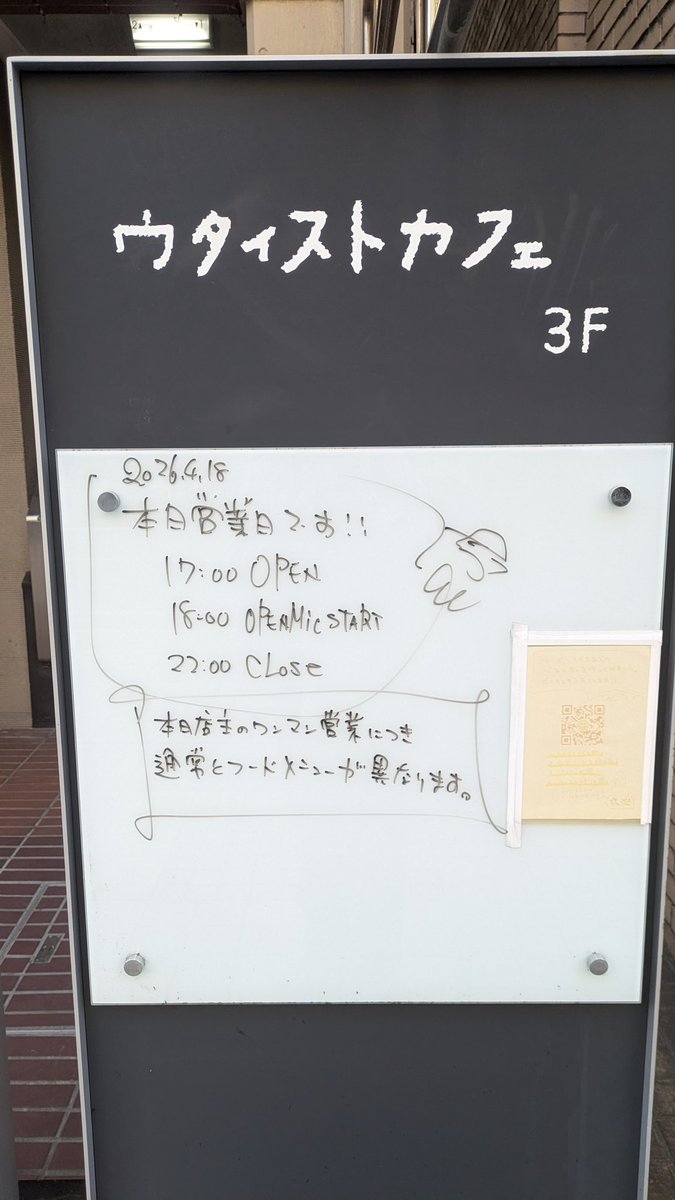 ウタイストカフェ
3F
2026.4.18
本日営業日です!!
17:00 OPEN
18:00 OPENMic START
22:00 CLOSE
本日店主のワンマン営業につき
通常とフードメニューが異なります。